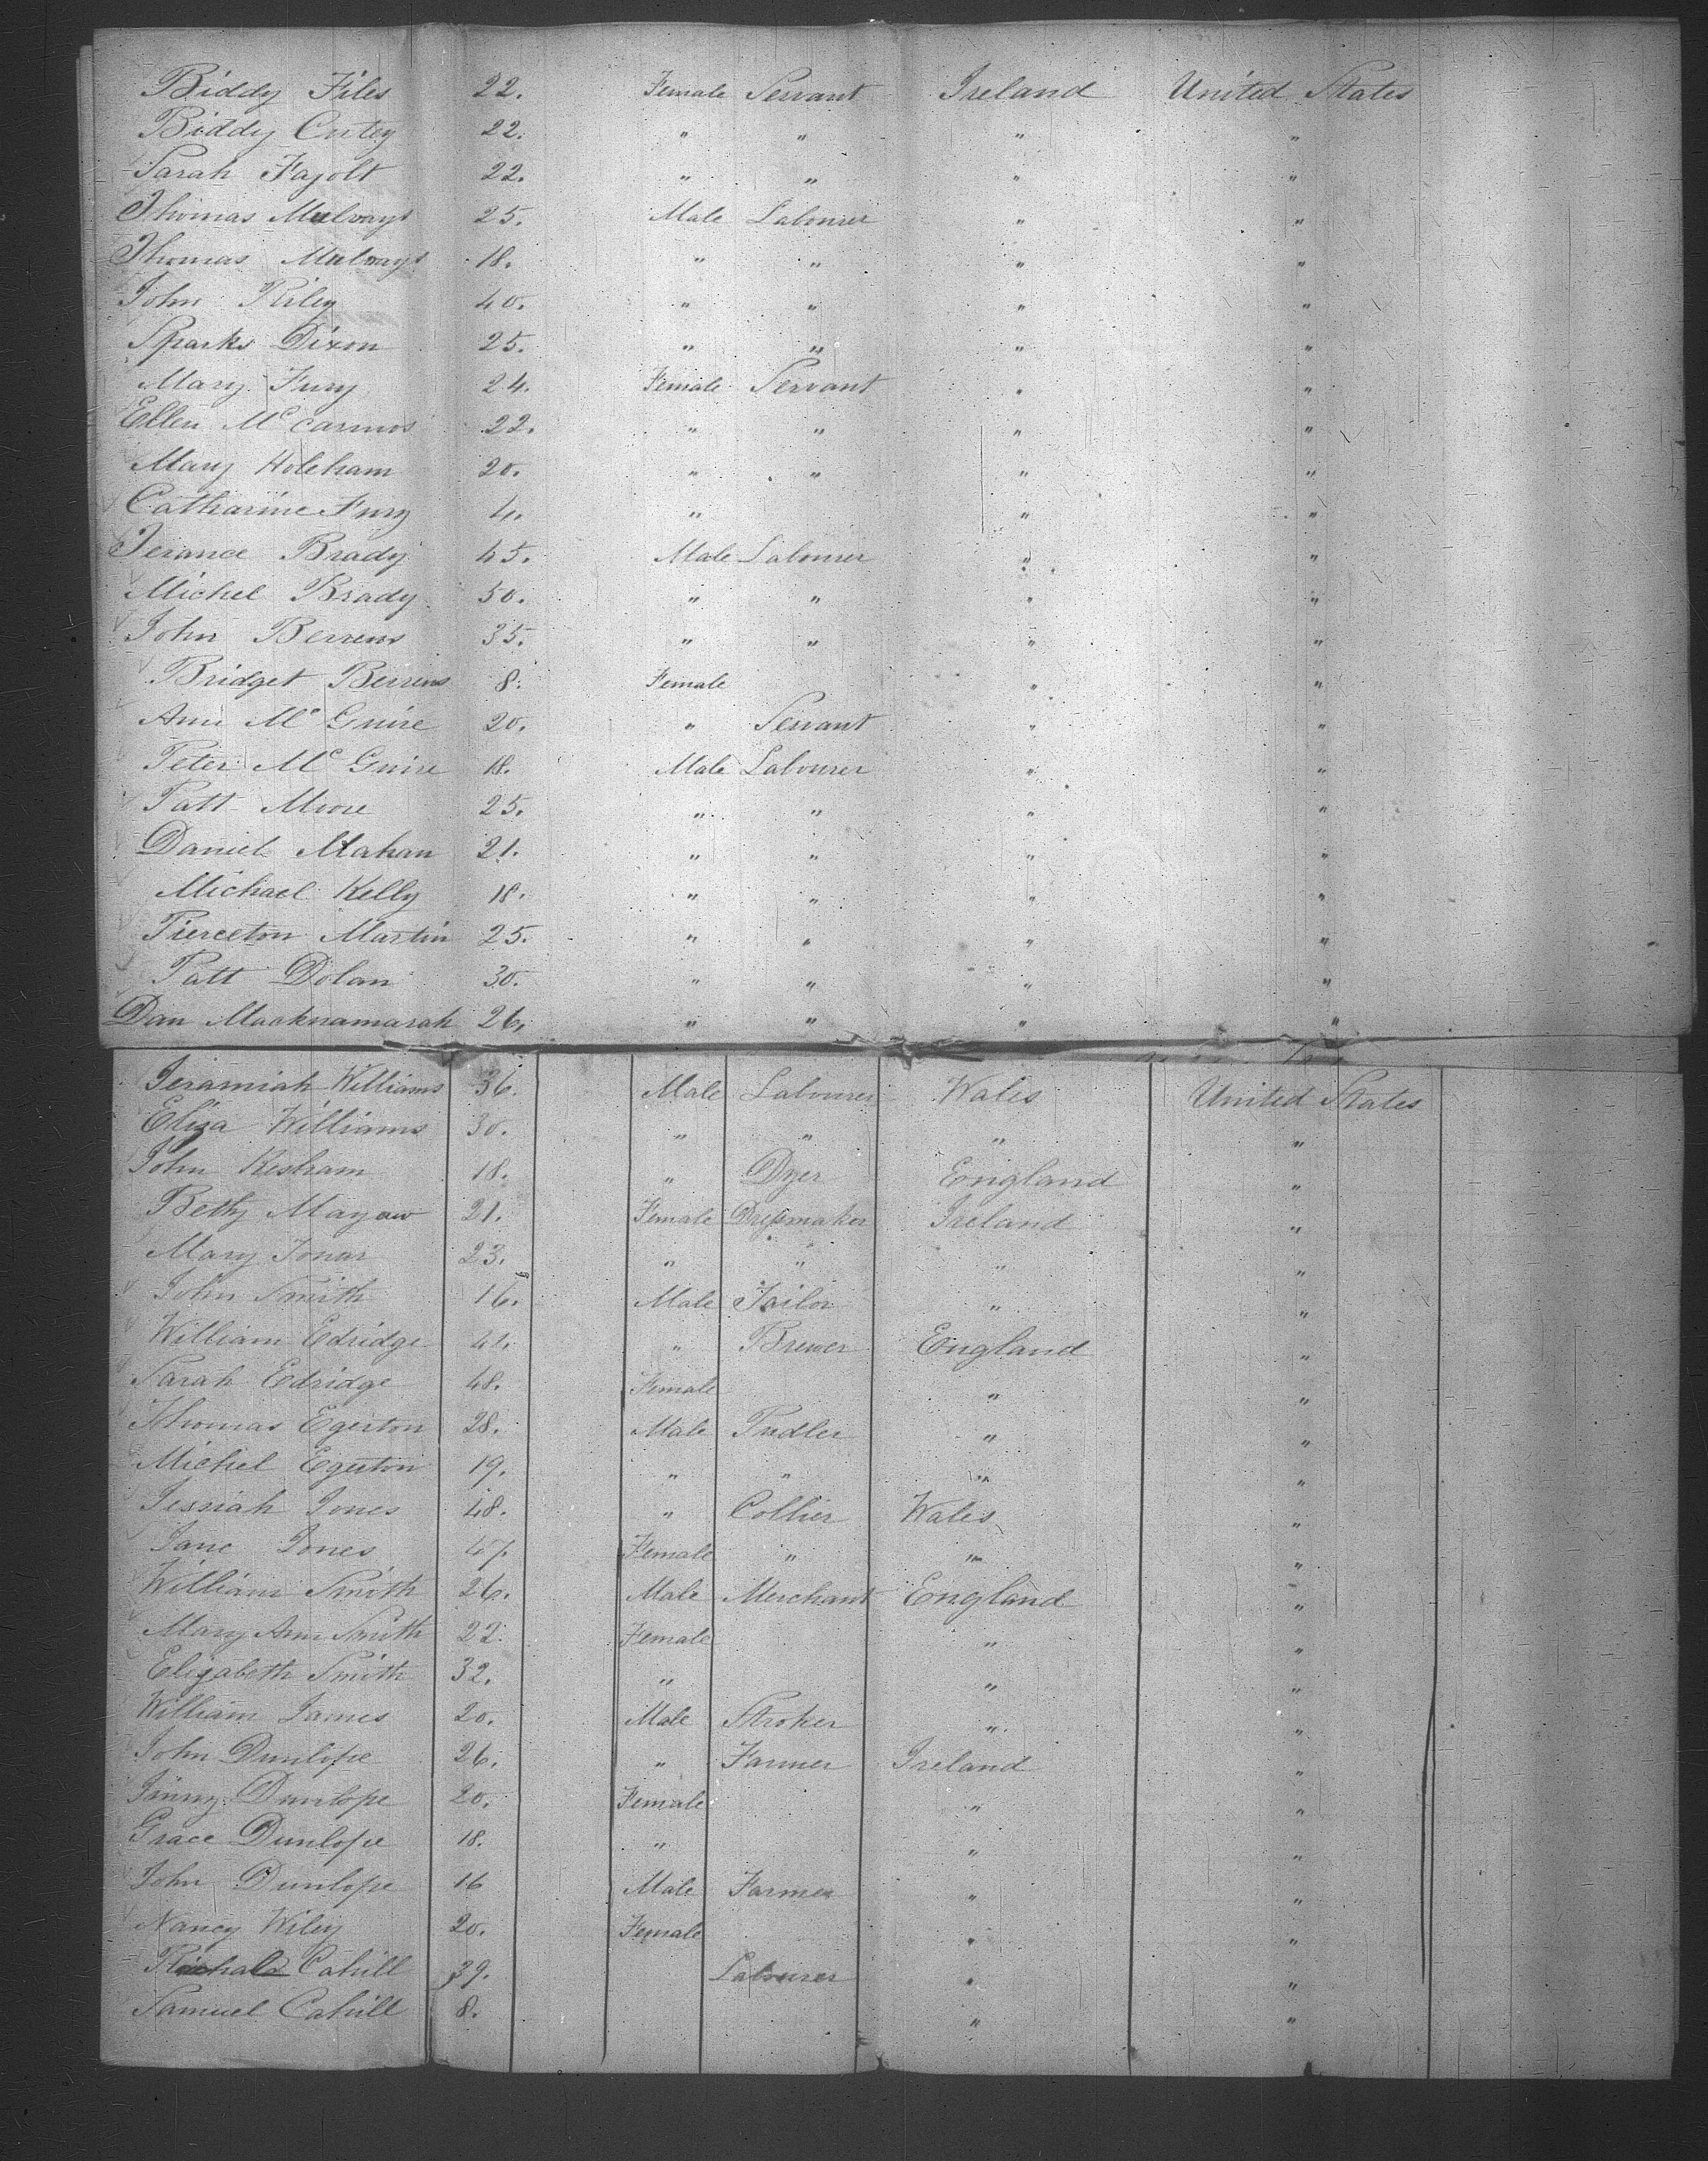 Biddy Files 22. Female Servant Ireland United States
Biddy Curtey 22. " " " "
Sarah Fajolt 22. " " " "
Thomas Mulvays 25. Male Labourer " "
Thomas Mulvays 18. " " " "
John Riley 40. " " " "
Sparks Dixon 25. " " " "
Mary Fury 24. Female Servant " "
Ellen McCarmos 22. " " " "
Mary Holeham 20. " " " "
Catharine Fury 4. " " "
Terance Brady 45. Male Labourer " "
Michel Brady 50. " " " "
John Berrens 35. " " " "
Bridget Berrens 8. Female " "
Ann Mc Guire 20. " Servant " "
Peter Mc Guire 18. Male Labourer " "
Patt Moore 25. " " " "
Daniel Mahan 21. " " " "
Michael Kelly 18. " " " "
Pierceton Martin 25. " " " "
Patt Dolan 30. " " " "
Dan Macknamarah 26. " " " "
Jeramiah Williams 36. Male Labourer Wales United States
Eliza Williams 30. " " " "
John Kesham 18. " Dyer England "
Bethy Mayaw 21. Female Dressmaker Ireland "
Mary Jonar 23. " " " "
John Smith 16. Male Tailor " "
William Edridge 41. " Brewer England "
Sarah Edridge 48. Female " "
Thomas Egerton 28. Male Pudler " "
Michel Egerton 19. " " " "
Jessiah Jones 48. " Collier Wales "
Jane Jones 47. Female " " "
William Smith 26. Male Merchant England "
Mary Ann Smith 22. Female " "
Elizabeth Smith 32. " " "
William James 20. Male Stroker " "
John Dunlope 26. " Farmer Ireland "
Jinny Dunlope 20. Female " "
Grace Dunlope 18. " " "
John Dunlope 16 Male Farmer " "
Nancy Wiley 20. Female " "
Cahill 39. Labourer " "
Samuel Cahill 8. " "